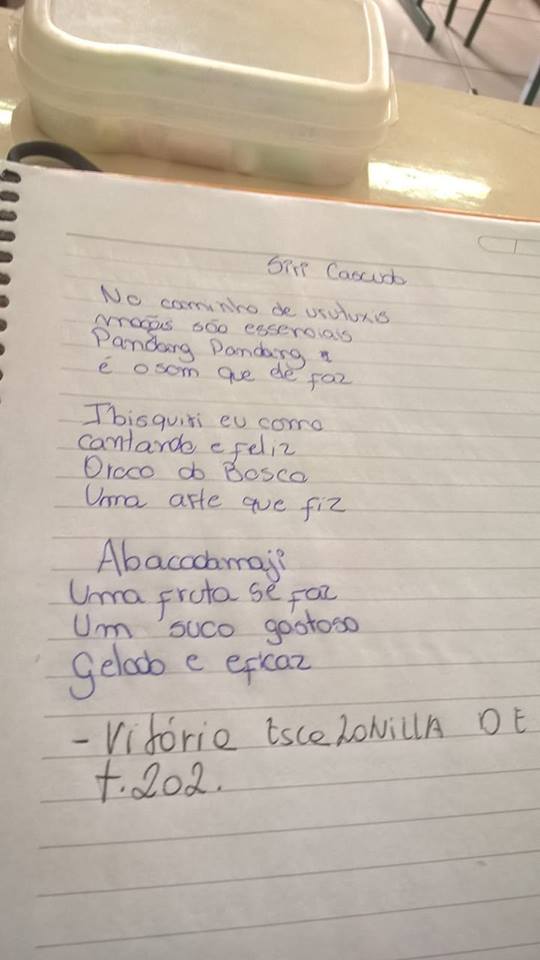 Siri Cascudo
No caminho de usutuxis
maçãs são essenciais
Pandarg Pandarg
é o som que de faz
Ibisquiri eu como
cantando e feliz
Disco do Bosco
Uma arte que fiz
Abacadamaji
Uma fruta se faz
Um suco gostoso
Gelado e eficaz
- Vitório DE
t.202.